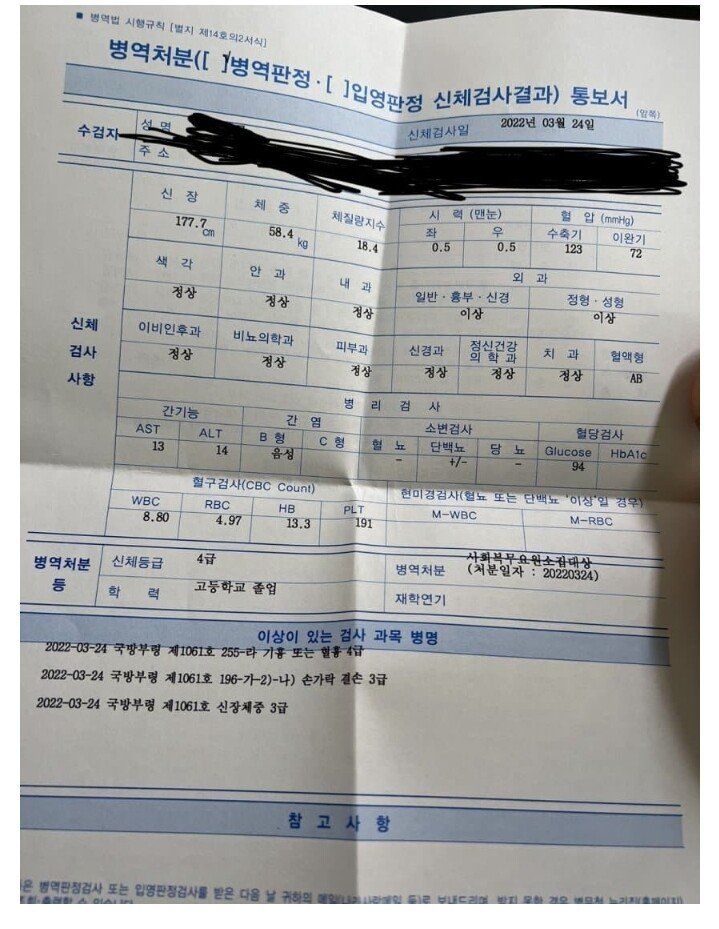 ■ 병역법 시행규칙 [별지 제14호의2서식]
병역처분([ ]병역판정·[ ]입영판정 신체검사결과) 통보서
(앞쪽)
수검자 성 명 신체검사일 2022년 03월 24일
주 소
신 장 체 중 체질량지수 시 력 (맨눈) 혈 압 (mmHg)
좌 우 수축기 이완기
177.7 cm 58.4 kg 18.4 0.5 0.5 123 72
색 각 안 과 내 과 외 과
일반·흉부·신경 정형·성형
정상 정상 정상 이상 이상
신체 검사 사항
이비인후과 비뇨의학과 피부과 신경과 정신건강의 학 과 치 과 혈액형
정상 정상 정상 정상 정상 정상 AB
병 리 검 사
간기능 간 염 소변검사 혈당검사
AST ALT B 형 C 형 혈 뇨 단백뇨 당 뇨 Glucose HbA1c
13 14 음성 - +/- - 94
혈구검사(CBC Count) 현미경검사(혈뇨 또는 단백뇨 '이상'일 경우)
WBC RBC HB PLT M-WBC M-RBC
8.80 4.97 13.3 191
병역처분 등 신체등급 4급 병역처분 사회복무요원소집대상
(처분일자 : 20220324)
학 력 고등학교 졸업 재학연기
이상이 있는 검사 과목 병명
2022-03-24 국방부령 제1061호 255-라 기흉 또는 혈흉 4급
2022-03-24 국방부령 제1061호 196-가-2)-나) 손가락 결손 3급
2022-03-24 국방부령 제1061호 신장체중 3급
참 고 사 항
은 병역판정검사 또는 입영판정검사를 받은 다음 날 귀하의 메일(나라사랑메일 등)로 보내드리며, 받지 못한 경우 병무청 누리집(홈페이지)
조회·출력할 수 있습니다.